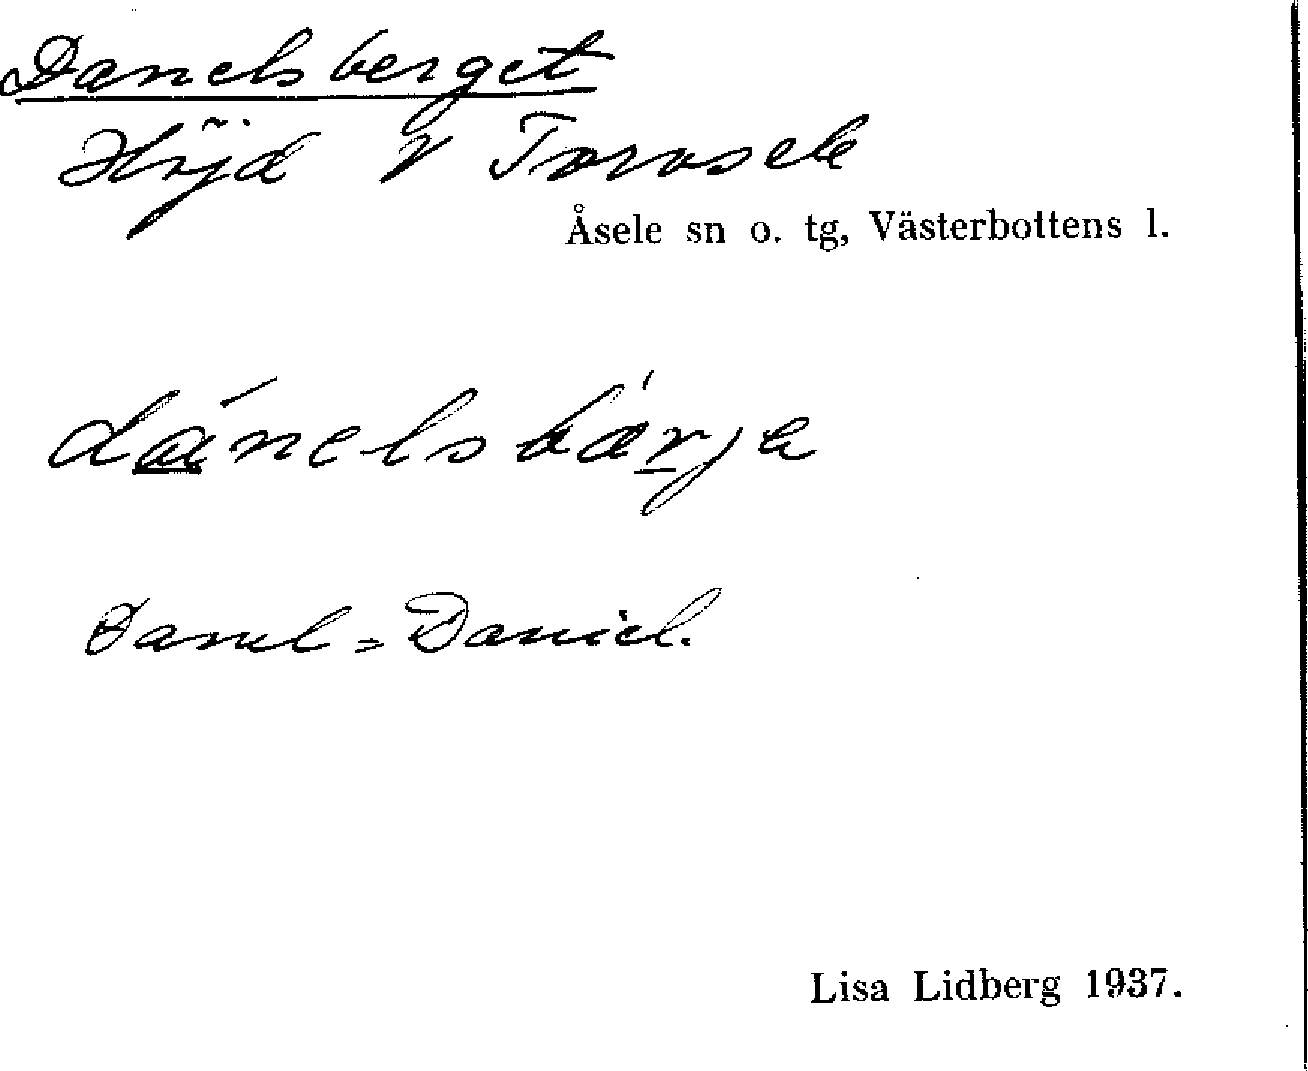 Danelsberget
Höjd V Torvsele
Åsele sn o. tg, Västerbottens l.
dánelsbárja
Danel = Daniel.
Lisa Lidberg 1937.